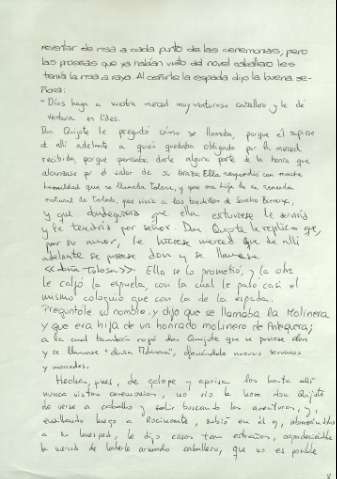 reventar de risa a cada punto de las ceremonias, pero
las proezas que ya habían visto del novel caballero les
tenía la risa a raya. Al ceñirle la espada dijo la buena se-
ñora:
- "Dios haga a vuestra merced muy venturoso caballero y le dé
ventura en lides.
Don Quijote le preguntó cómo se llamaba, porque él supiese
de allí adelante a quién quedaba obligado por la merced
recibida, porque pensaba darle alguna parte de la honra que
alcanzase por el valor de su brazo. Ella respondió con mucha
humildad que se llamaba Tolosa, y que era hija de un remendón
natural de Toledo, que vivía a las tendillas de Sancho
y que dondequiera que ella estuviese le serviría
y le tendría por señor. Don Quijote le replicó que,
por su amor, le hiciese merced que de allí
adelante se pusiese don y se llamase
<<doña Tolosa>>. Ella se lo prometió, y la otra
le calzó la espuela, con la cual le pasó casi el
mismo coloquio que con la de la espada.
Preguntole su nombre, y dijo que se llamaba la Molinera
y que era hija de un honrado molinero de Antequera;
a la cual también rogó don Quijote que se pusiese don
y se llamase "doña Molinera", ofreciéndole nuevos servicios
y mercedes.
Hechas, pues, de galope y aprisa las hasta allí
nunca vistas ceremonias, no vio la hora don Quijote
de verse a caballo y salir buscando las aventuras, y,
ensillando luego a Rocinante, subió en él y, abrazando
a su huésped, le dijo cosas tan extrañas, agradeciéndole
la merced de haberle armado caballero, que no es posible